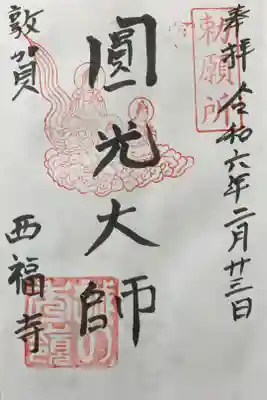 勅願所
奉拝 令和六年二月廿三日
圓光大師
敦賀
西福寺